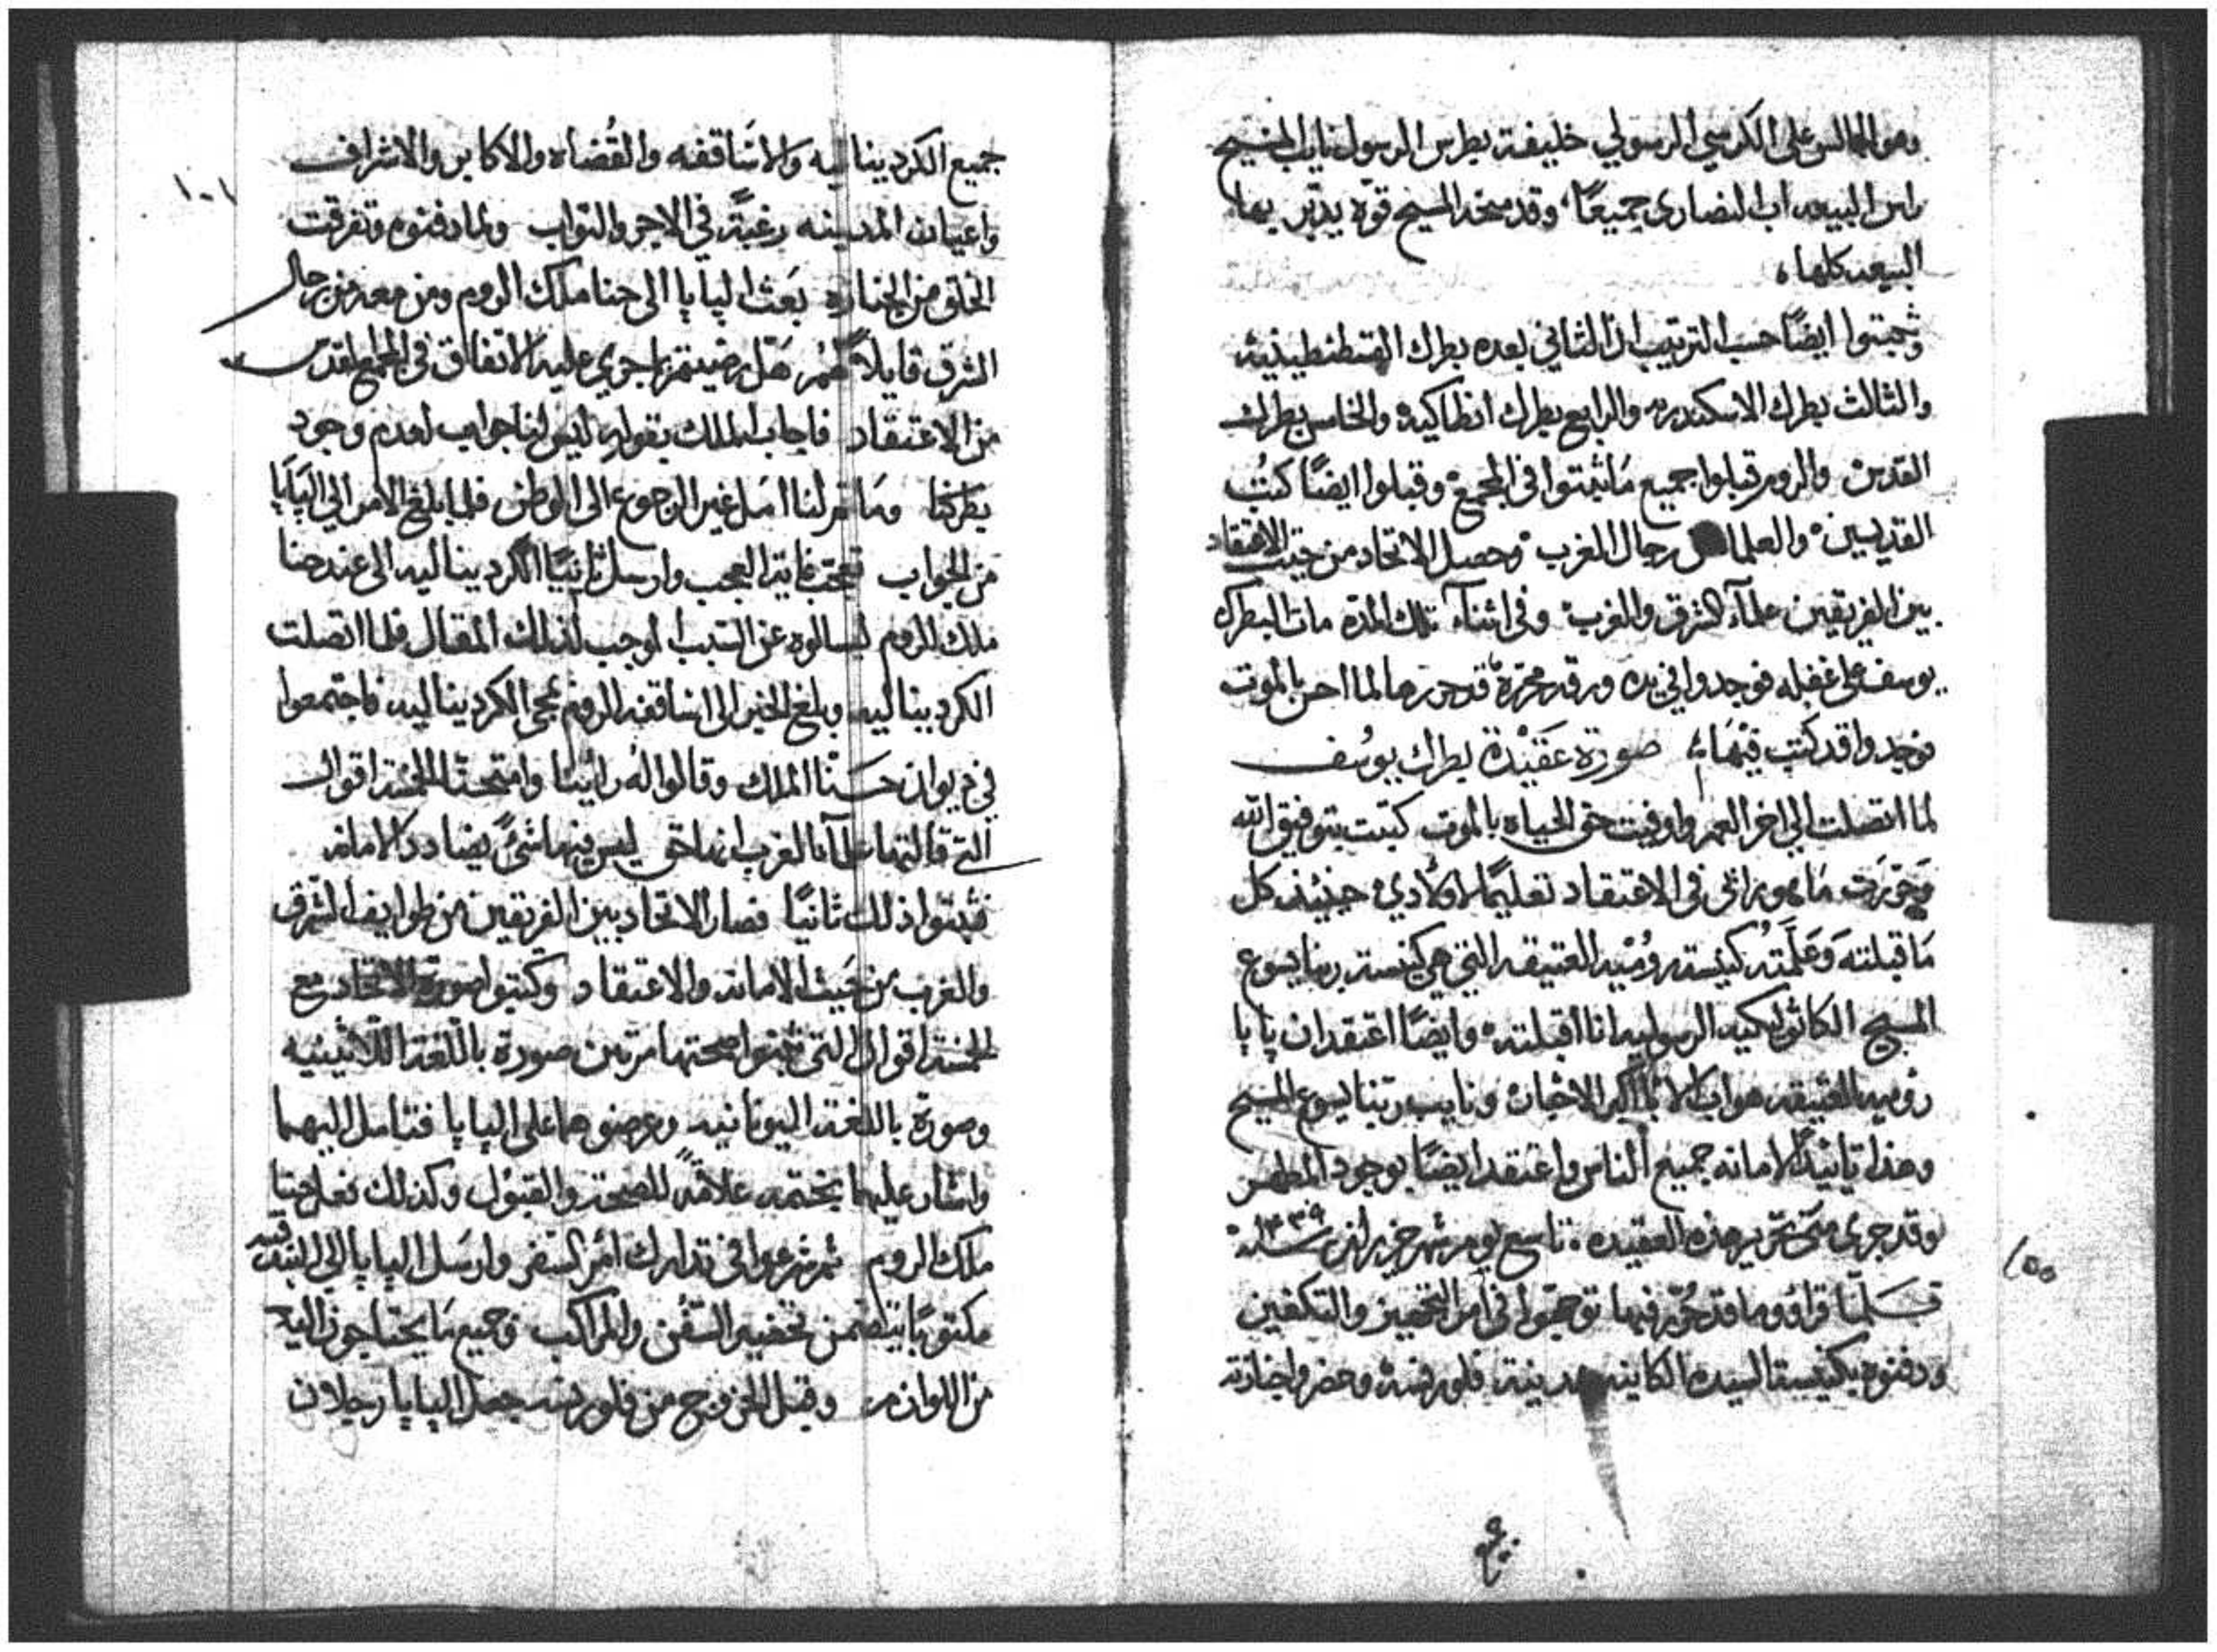 وهو الجالس على الكرسي الرسولي خليفة بطرس الرسول نايب المسيح
راس البيعه اب النصارى جميعًا، وقد منحه المسيح قوة يدبّر بها
البيعه كلها،
وثبتوا ايضًا حسب الترتيب ان الثاني بعده بطرك القسطنطينية
والثالث بطرك الاسكندريه والرابع بطرك انطاكيه والخامس بطرك
القدس والروم قبلوا جميع ما ثبتوا في المجمع وقبلوا ايضًا كتُب
القديسين والعلما رجال المغرب وحصل الاتحاد من حيث الاعتقاد
بين الفريقين علمآء الشرق والغرب وفي اثنآء تلك المدة مات البطرك
يوسف على غفله فوجدوا في يده ورقه محررة قد حررها لما احس بالموت
فوجدوا قد كتب فيهَا، صورة عَقيْدة بطرك يوسُف
لما اتصلت الى اخر العمر واوفيت حق الحياه بالموت كتبت بتوفيق الله
وَحَررَت مَا هو رائي في الاعتقاد تعليمًا لاولادي حينئذ كل
مَا قبلتهَ وَعَلَّمَتهُ كنيسة رومْيه العتيقه التي هي كنيسة ربنا يسوع
المسيح الكاثوليكيه الرسوليه انا اقبلته وايضًا اعتقد ان پاپا
رؤميه العتيقه هو اب الابآ اكبر الاحبار ونايب ربّنا يسوع المسيح
وهذا تائيدًا لامانه جميع الناس واعتقد ايضًا بوجود المطهر
وقد جرى منى تحرير هذه العقيده تاسع يوم شهر حزيران سنة ١٤٣٩
فَلمّا قراوه وما قد حُرّر فيها توجهّوا في امر التجهيز والتكفين
ودفنوه بكنيسة السيده الكاينه بمدينة فلورنسه وحضروا جنازته
جميع
١٥٥
١٠١
جميع الكرديناليه والاسَاقفه والقُضاه والاكابر والاشراف
واعيان المدينه رغبَةً في الاجر والثواب ولما دفنوه وتفرقت
الخلق من الجنازه بَعَث الپاپا الى حنا ملك الروم ومن معه من رجال
الشرق قايلاً لَهُمُ هَل رضيتم بما جري عليه الاتفاق في المجمع المقدس
من الاعتقاد فاجاب الملك بقوله ليس لنا جواب لعدم وجود
بطركنا ومَا تم لنا امَل غير الرجوع الى الوطن فلما بلغ الامر الي الپَاپَا
من الجواب تعجّب غاية العجب وارسل ثانيًا الكرديناليه الى عند حنا
ملك الروم ليسالوه عن السبب الموجب لذلك المقال فلما اتصلت
الكرديناليه وبلغ الخبر الى اساقفه الروم بمجى الكرديناليه فاجتمعوا
في ديوان حَنّا الملك وقالوا له رائينا وامتحنّا الخمسة اقوال
التي قالتها علمآء الغرب انها حق ليس فيها شئً يضادد الامانه
فثبتوا ذلك ثانيًا فصار الاتحاد بين الفريقين من طوايف الشرق
والغرب من حَيث الامانه والاعتقاد وكتبوا صورة الاتحاد مع
الخمسة اقوال التي ثبتوا صحتها مرتين صورة باللّغة اللّاتينيه
وصورة باللغة اليونانيه وعرضوهما على الپاپا فتامل اليهما
واشار عليهما بختمه علامةً للصحة والقبول وكذلك فعل حنا
ملك الروم ثم شرعوا في تدارك امْر السفر وارسَل الپاپا الي البندقيه
مكتوبًا يتضمن تحضير السفُن والمراكب وجميع مَا يحتاجون اليه
من اللوازم وقبل الخروج من فلورنسه جعل الپاپا رجلان